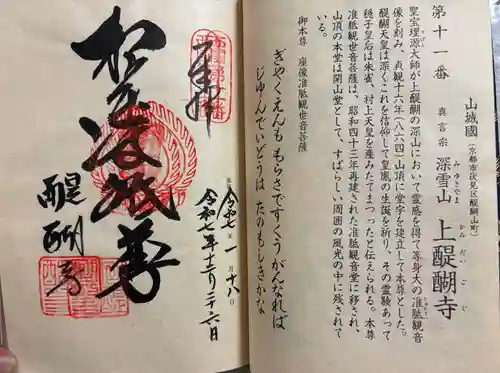 第十一番
山城國
(京都市伏見区醍醐山町)
真言宗
深雪山
みゆきやま
上醍醐寺
かみだいごじ
聖宝理源大師が上醍醐の深山において霊感を得て等身大の准胝観音
像を刻み、貞観十六年(八六四)山頂に堂宇を建立して本尊とした。
醍醐天皇は深くこれを信仰して皇胤の生誕を祈り、その霊験あって
穏子皇后は朱雀、村上天皇を産みたてまつったと伝えられる。本尊
准胝観世音菩薩は、昭和四十三年再建された准胝観音堂に移され、
山頂の本堂は開山堂として、すばらしい周囲の風光の中に残されて
いる。
御本尊 座像准胝観世音菩薩
ぎやくえんも もらさですくうがんなれば
じゆんでいどうは たのもしきかな
令和七年一月十八日
令和七年十二月二十六日
醍醐寺